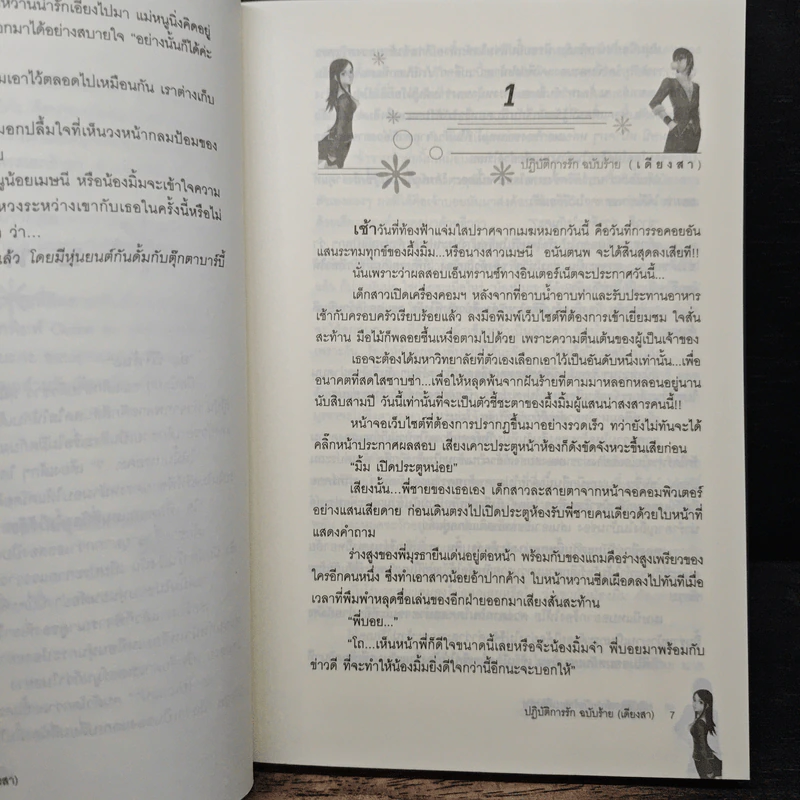 หวานน่ารักเอียงไปมา แม่หนูนิ่งคิดอยู่
อกมาได้อย่างสบายใจ "อย่างนั้นก็ได้ค่ะ
มเอาไว้ตลอดไปเหมือนกัน เราต่างเก็บ
มอกปลื้มใจที่เห็นวงหน้ากลมป้อมของ
นูน้อยเมษนี หรือน้องมิ้มจะเข้าใจความ
หวงระหว่างเขากับเธอในครั้งนี้หรือไม่
ว่า...
แล้ว โดยมีหุ่นยนต์กันดั้มกับตุ๊กตาบาร์บี้
1
ปฏิบัติการรัก ฉบับร้าย (เดียงสา)
เช้าวันที่ท้องฟ้าแจ่มใสปราศจากเมฆหมอกวันนี้ คือวันที่การรอคอยอัน
แสนระทมทุกข์ของผึ้งมิ้ม...หรือนางสาวเมษนี อนันตนพ จะได้สิ้นสุดลงเสียที!!
นั่นเพราะว่าผลสอบเอ็นทรานซ์ทางอินเตอร์เน็ตจะประกาศวันนี้...
เด็กสาวเปิดเครื่องคอมฯ หลังจากที่อาบน้ำอาบท่าและรับประทานอาหาร
เช้ากับครอบครัวเรียบร้อยแล้ว ลงมือพิมพ์เว็บไซต์ที่ต้องการเข้าเยี่ยมชม ใจสั่น
สะท้าน มือไม้ก็พลอยชื้นเหงื่อตามไปด้วย เพราะความตื่นเต้นของผู้เป็นเจ้าของ
เธอจะต้องได้มหาวิทยาลัยที่ตัวเองเลือกเอาไว้เป็นอันดับหนึ่งเท่านั้น...เพื่อ
อนาคตที่สดใสซาบซ่า...เพื่อให้หลุดพ้นจากฝันร้ายที่ตามมาหลอกหลอนอยู่นาน
นับสิบสามปี วันนี้เท่านั้นที่จะเป็นตัวชี้ชะตาของผึ้งมิ้มผู้แสนน่าสงสารคนนี้!!
หน้าจอเว็บไซต์ที่ต้องการปรากฏขึ้นมาอย่างรวดเร็ว ทว่ายังไม่ทันจะได้
คลิ๊กหน้าประกาศผลสอบ เสียงเคาะประตูหน้าห้องก็ดังขัดจังหวะขึ้นเสียก่อน
"มิ้ม เปิดประตูหน่อย"
เสียงนั้น...พี่ชายของเธอเอง เด็กสาวละสายตาจากหน้าจอคอมพิวเตอร์
อย่างแสนเสียดาย ก่อนเดินตรงไปเปิดประตูห้องรับพี่ชายคนเดียวด้วยใบหน้าที่
แสดงคำถาม
ร่างสูงของพี่มุรธายืนเด่นอยู่ต่อหน้า พร้อมกับของแถมคือร่างสูงเพรียวของ
ใครอีกคนหนึ่ง ซึ่งทำเอาสาวน้อยอ้าปากค้าง ใบหน้าหวานซีดเผือดลงไปทันทีเมื่อ
เวลาที่พึมพำหลุดชื่อเล่นของอีกฝ่ายออกมาเสียงสั่นสะท้าน
"พี่บอย..."
"โถ...เห็นหน้าพี่ก็ดีใจขนาดนี้เลยหรือจ๊ะน้องมิ้มจ๋า พี่บอยมาพร้อมกับ
ข่าวดี ที่จะทำให้น้องมิ้มยิ่งดีใจกว่านี้อีกนะจะบอกให้"
ปฏิบัติการรัก ฉบับร้าย (เดียงสา) 7